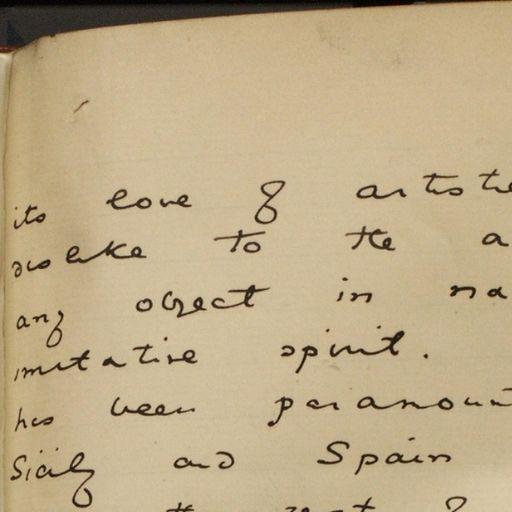 its love of artistic
dislike to the a
any object in na
imitative spirit.
has been paramount
Sicily and Spain
the rest of